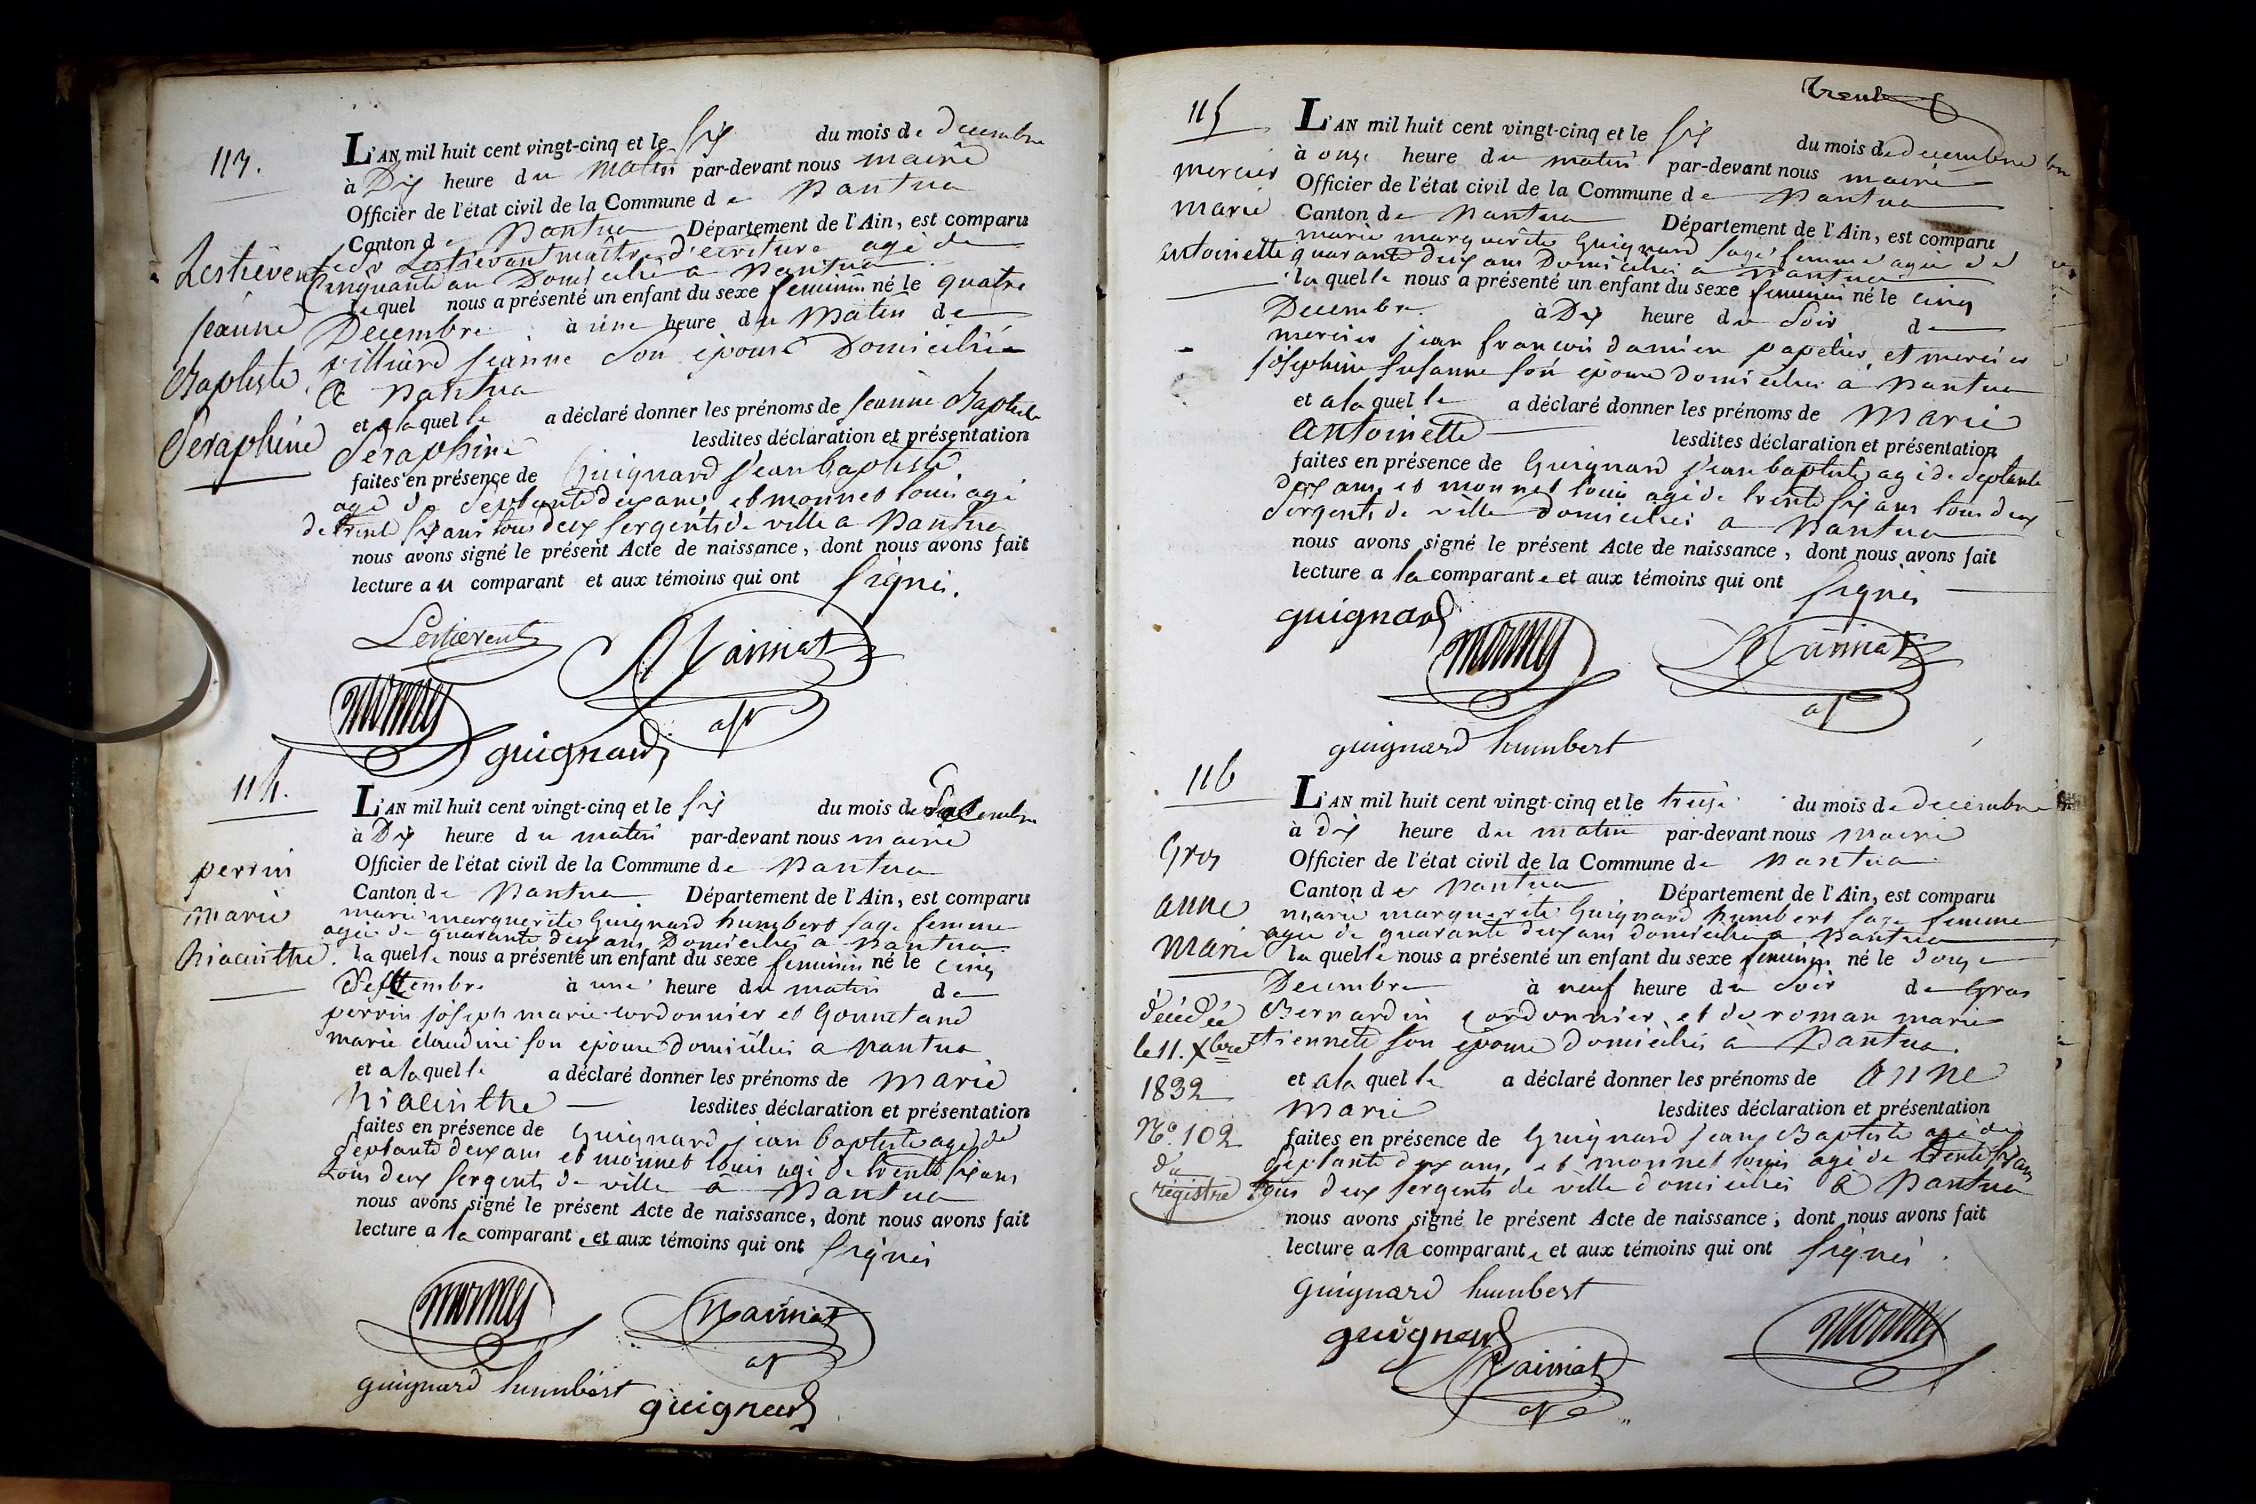 113.
Lestievent
jeanne
Baptiste
Seraphine
L'AN mil huit cent vingt-cinq et le six du mois de decembre
à Dix heure du matin par-devant nous maire
Officier de l'état civil de la Commune de Nantua
Canton de Nantua Département de l'Ain, est comparu
Lestievant maître d'ecriture agé de
Cinquante an Domicilié a Nantua
lequel nous a présenté un enfant du sexe feminin né le quatre
Decembre à une heure du Matin de
villiard jeanne son épouse Domiciliée
a Nantua
et alaquelle a déclaré donner les prénoms de jeanne Baptiste
Seraphine lesdites déclaration et présentation
faites en présence de Guignard jean baptiste
agé de septante deux ans, et monnet louis agé
de trente six ans tous deux sergents de ville a Nantua
nous avons signé le présent Acte de naissance, dont nous avons fait
lecture au comparant et aux témoins qui ont signés.
Lestievent
monnet
guignard
114.
perrin
marie
hiacinthe
L'AN mil huit cent vingt-cinq et le six du mois de decembre
à Dix heure du matin par-devant nous maire
Officier de l'état civil de la Commune de Nantua
Canton de Nantua Département de l'Ain, est comparu
marie marguerite Guignard humbert sage femme
agée de quarante deux ans Domiciliée a Nantua
laquelle nous a présenté un enfant du sexe feminin né le cinq
à une heure du matin de
perrin joseph marie cordonnier et Gonnetand
marie claudine son epouse domiciliés a Nantua
et alaquelle a déclaré donner les prénoms de marie
hiacinthe lesdites déclaration et présentation
faites en présence de Guignard jean baptiste agé de
septante deux ans et monnet louis agé de trente six ans
tous deux sergents de ville a Nantua
nous avons signé le présent Acte de naissance, dont nous avons fait
lecture a la comparante et aux témoins qui ont signés
monnet
guignard humbert
guignard
115
mercier
marie
antoinette
L'AN mil huit cent vingt-cinq et le six du mois de decembre
à onze heure du matin par-devant nous maire
Officier de l'état civil de la Commune de Nantua
Canton de Nantua Département de l'Ain, est comparu
marie marguerite Guignard sage femme agée de
quarante deux ans Domiciliée a Nantua
laquelle nous a présenté un enfant du sexe feminin né le cinq
Decembre à Dix heure du Soir de
mercier jean francois damien papetier et mercier
josephine susanne son épouse domiciliés à Nantua
et alaquelle a déclaré donner les prénoms de Marie
antoinette lesdites déclaration et présentation
faites en présence de Guignard jean baptiste agé de septante
deux ans, et monnet louis agé de trente six ans tous deux
sergents de ville domiciliés a Nantua
nous avons signé le présent Acte de naissance, dont nous avons fait
lecture a la comparante et aux témoins qui ont signés
guignard
monnet
guignard humbert
116
Gros
anne
marie
décédée
le 11. Xbre
1832
No. 102
du
régistre
L'AN mil huit cent vingt-cinq et le treize du mois de decembre
à dix heure du matin par-devant nous maire
Officier de l'état civil de la Commune de Nantua
Canton de Nantua Département de l'Ain, est comparu
marie marguerite Guignard humbert sage femme
agée de quarante deux ans domiciliée a Nantua
laquelle nous a présenté un enfant du sexe feminin né le douze
Decembre à neuf heure du Soir de Gros
Bernardin cordonnier, et de roman marie
etiennete son épouse domiciliés à Nantua.
et alaquelle a déclaré donner les prénoms de anne
marie lesdites déclaration et présentation
faites en présence de Guignard jean Baptiste agé de
septante deux ans, et monnet louis agé de trente six ans
tous deux sergents de ville domiciliés a Nantua
nous avons signé le présent Acte de naissance, dont nous avons fait
lecture a la comparante et aux témoins qui ont signés.
guignard humbert
guignard
monnet